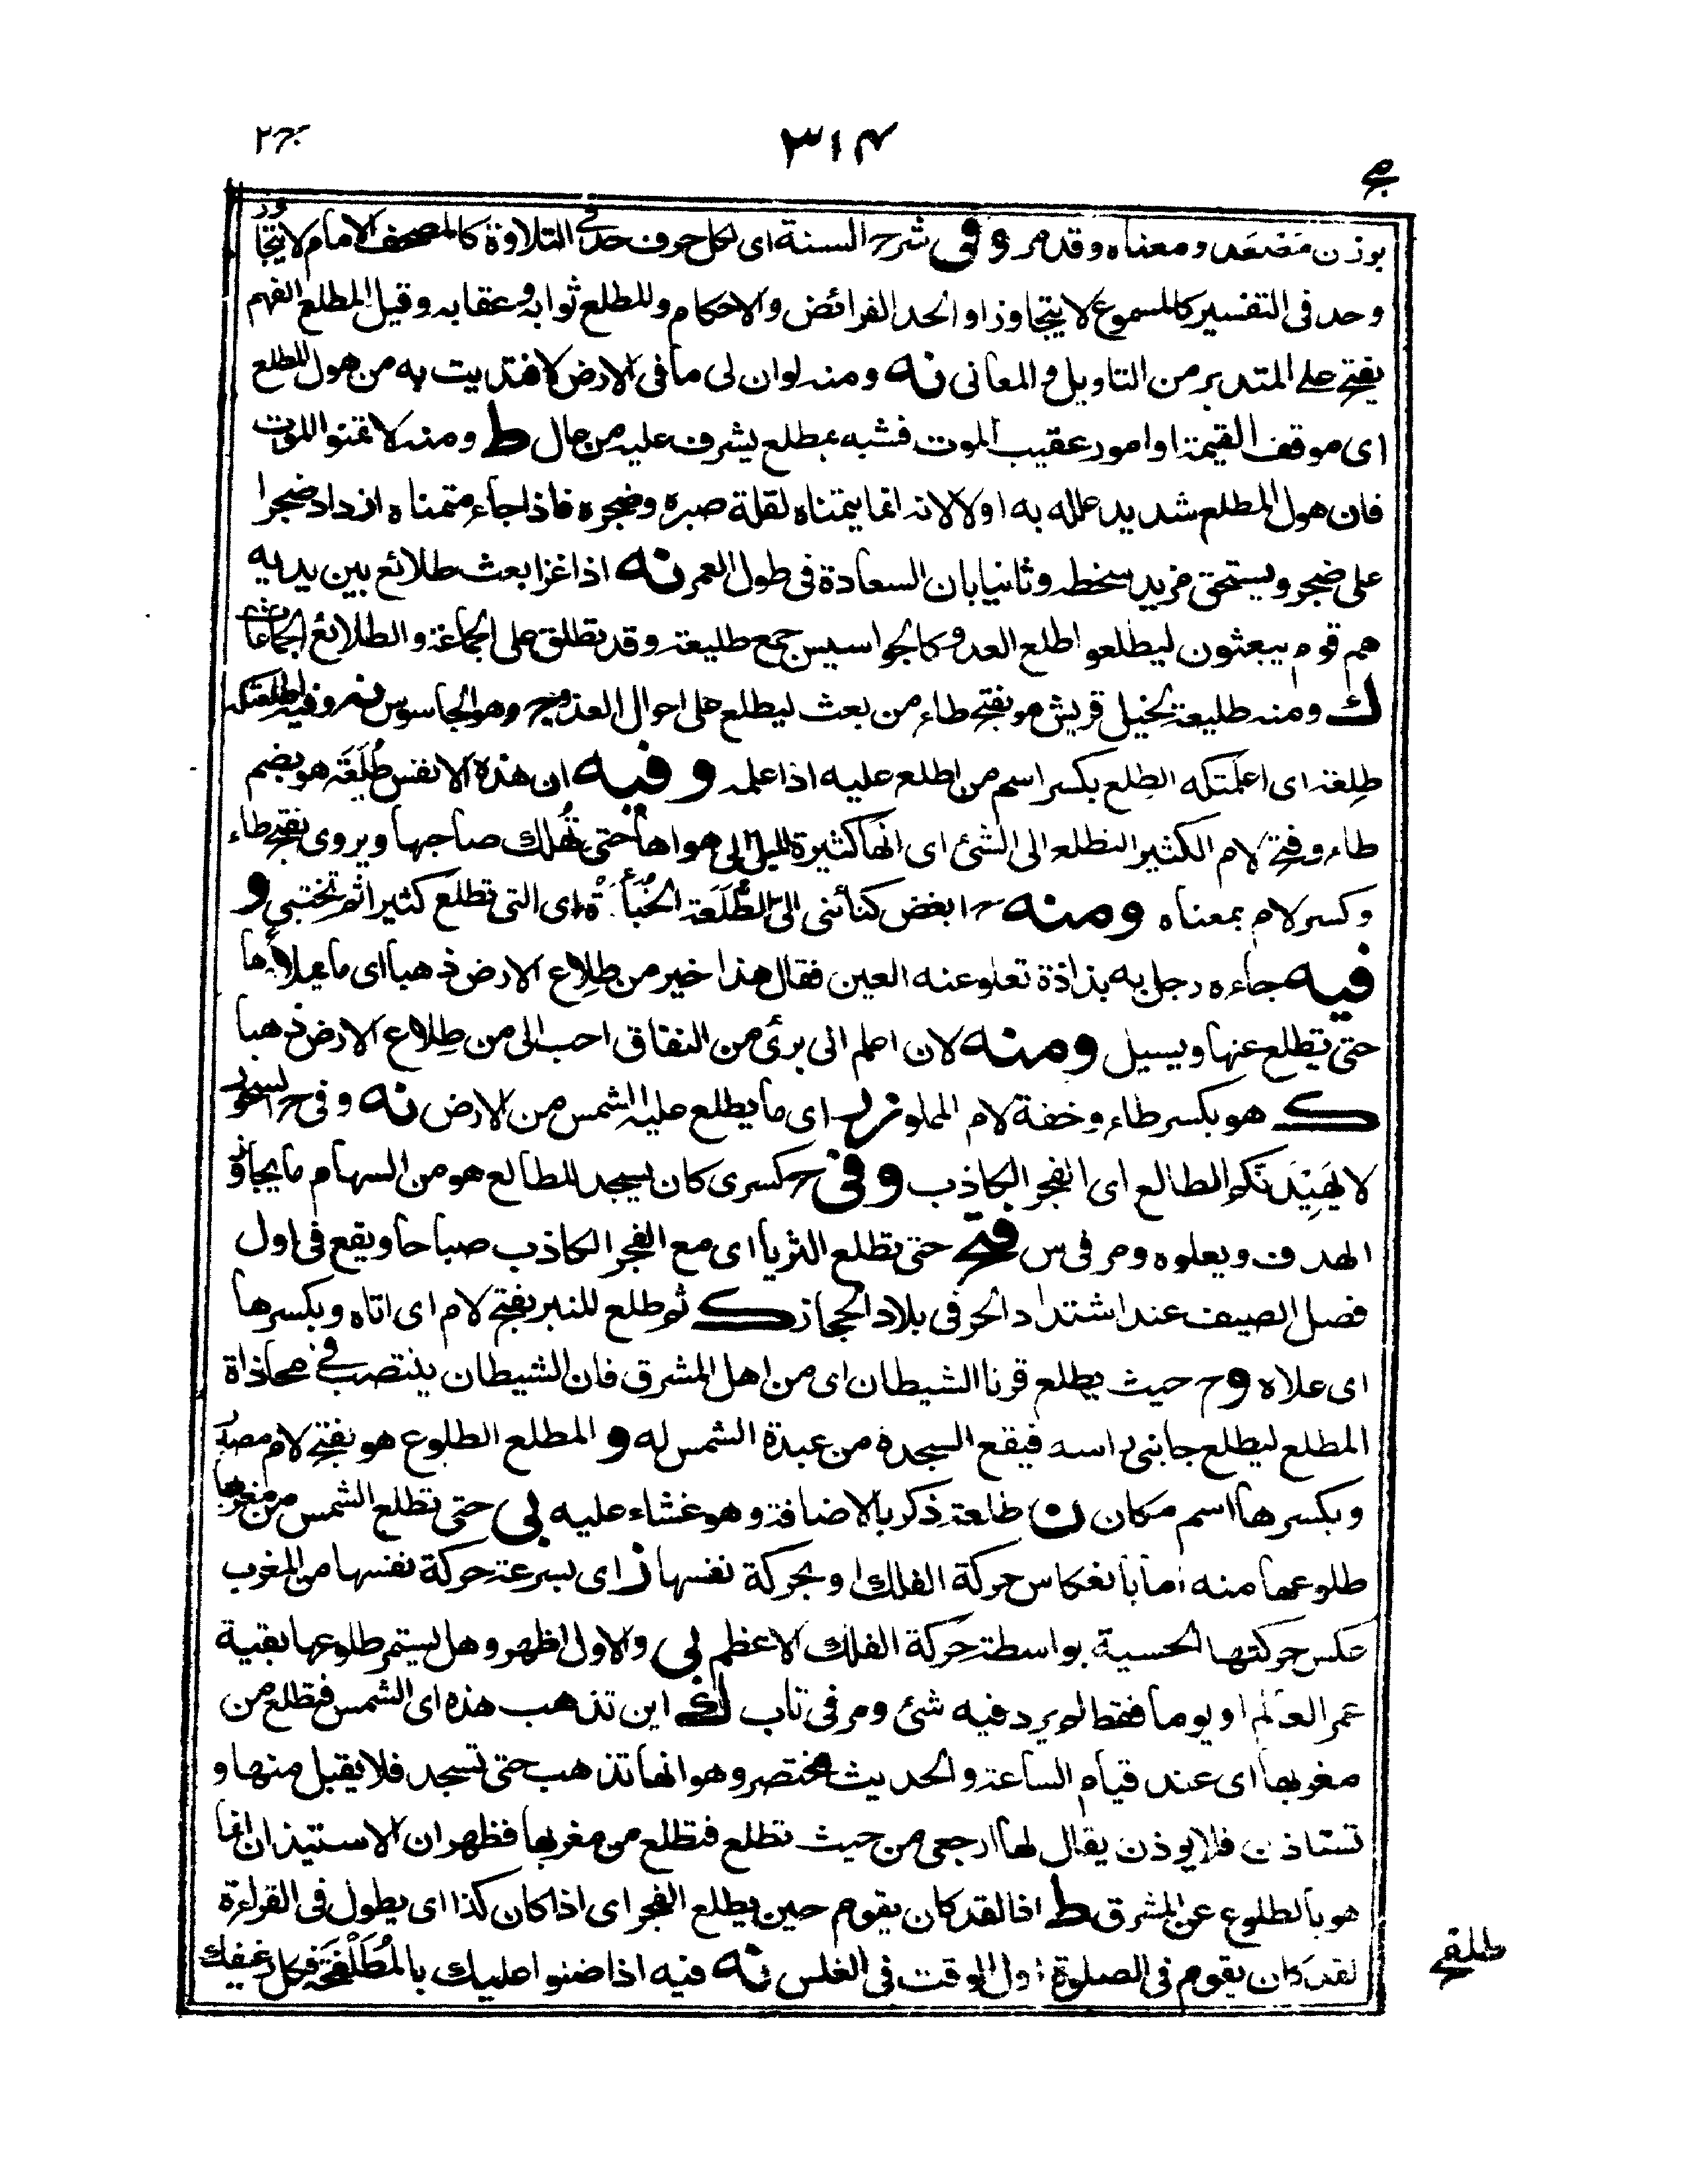 ج٢
٣١٤
مج
بوزن مَصْعَد ومعناه وقد مر وفى شرح السنة اى لكل حرف حد فى التلاوة كالمصحف الامام لا يتجاوز
وحد فى التفسير كالمسموع لا يتجاوز او الحد الفرائض والاحكام والمطلع ثوابه وعقابه وقيل المطلع الفهم
يفتح على المتدبر من التاويل والمعانى نه ومنه لو ان لى ما فى الارض لافتديت به من هول المطلع
اى موقف القيمة او امور عقيب الموت فشبه بمطلع يشرف عليه من عال ط ومنه لا تمنوا الموت
فان هول المطلع شديد علله به اولا لانه انما يتمناه لقلة صبره وضجره فاذا جاء متمناه ازداد ضجرا
على ضجر ويستحق مزيد سخطه وثانيا بان السعادة فى طول العمر نه اذا غزا بعث طلائع بين يديه
هم قوم يبعثون ليطلعوا طلع العدو كالجواسيس جمع طليعة وقد تطلق على الجماعة والطلائع الجماعات
ك ومنه طليعة لخيل قريش هو بفتح طاء من بعث ليطلع على احوال العدو وهو الجاسوس نه وفيه اطلعتك
طِلعة اى اعلمتكه الطِلع بكسر اسم من اطلع عليه اذا علمه وفيه ان هذه الانفس طُلَعَة هو بضم
طاء وفتح لام الكثير التطلع الى الشئ اى انها كثيرة الميل الى هواها حتى تُهلك صاحبها ويروى بفتح طاء
وكسر لام بمعناه ومنه ح ابغض كنائنى الىّ الطُّلَعَة الخُبَأَة اى التى تطلع كثيرا ثم تختبى و
فيه جاءه رجل به بذاذة تعلو عنه العين فقال هذا خير من طِلاع الارض ذهبا اى ما يملأها
حتى يطلع عنها ويسيل ومنه لان اعلم انى برئ من النفاق احب الى من طِلاع الارض ذهبا
ك هو بكسر طاء وخفة لام المملو اى ما يطلع عليه الشمس من الارض نه وفى ح السحور
لا يَهِيْدَنَّكم الطالع اى الفجر الكاذب وفى ح كسرى كان يسجد للطالع هو من السهام ما يجاوز
الهدف ويعلوه ومر فى س فتح حتى تطلع الثريا اى مع الفجر الكاذب صباحا ويقع فى اول
فصل الصيف عند اشتداد الحر فى بلاد الحجاز ك ثم طلع المنبر بفتح لام اى اتاه وبكسرها
اى علاه وح حيث يطلع قرنا الشيطان اى من اهل المشرق فان الشيطان ينتصب فى محاذاة
المطلع ليطلع جانبى راسه فيقع السجدة من عبدة الشمس له و المطلع الطلوع هو بفتح لام مصدر
وبكسرها اسم مكان ن طلعة ذكر بالاضافة وهو غشاء عليه بى حتى تطلع الشمس من مغربها
طلوعها منه اما بانعكاس حركة الفلك او بحركة نفسها ز اى بسرعة حركة نفسها من المغرب
عكس حركتها الحسية بواسطة حركة الفلك الاعظم بى والاول اظهر وهل يستمر طلوعها بقية
عمر العالم او يوما فقط لم يرد فيه شئ ومر فى تاب ك اين تذهب هذه اى الشمس فتطلع من
مغربها اى عند قيام الساعة والحديث مختصر وهو انها تذهب حتى تسجد فلا يقبل منها و
تستاذن فلا يوذن يقال لها ارجعى من حيث تطلع فتطلع من مغربها فظهر ان الاستيذان انما
هو بالطلوع عن المشرق ط اذا لقد كان يقوم حين يطلع الفجر اى اذا كان كذا اى يطول فى القراءة
لقد كان يقوم فى الصلوة اول الوقت فى الغلس نه فيه اذا ضنوا عليك بالمُطَلْفَحَة فكل رغيفك
طلفح